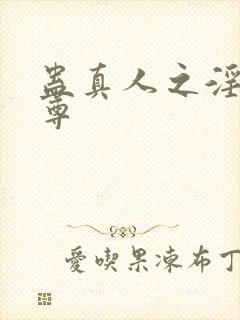 蛊真人之淫
尊
愛喫果凍布丁